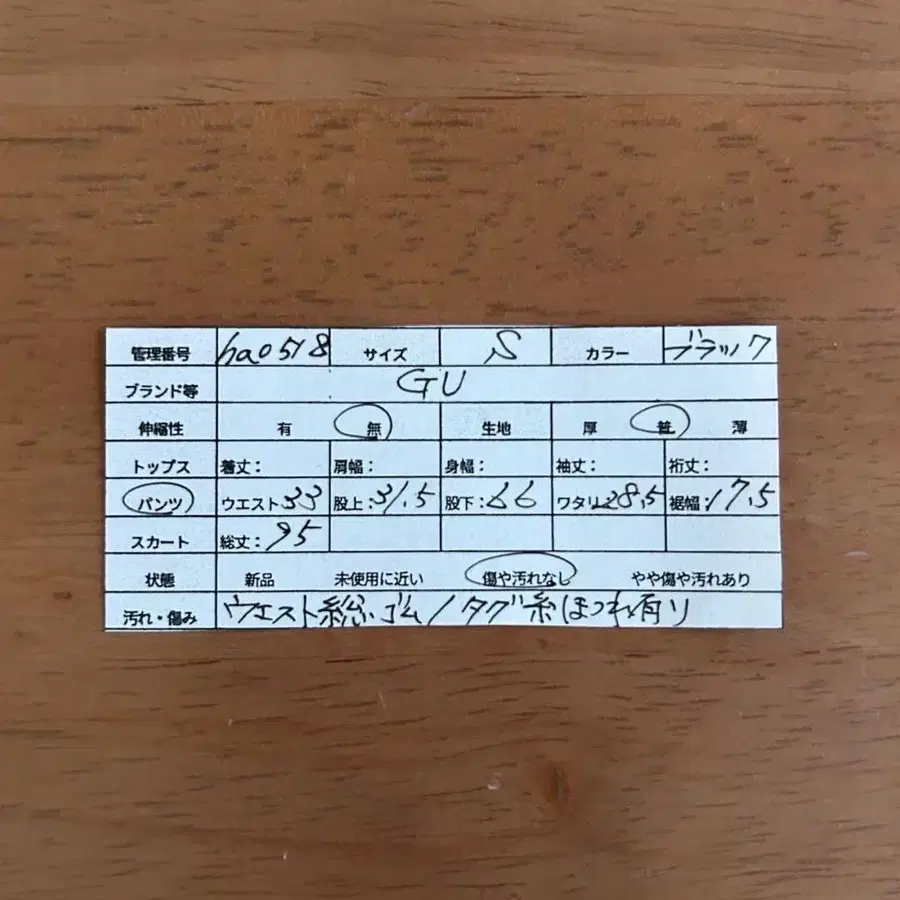 管理番号 ha0518 サイズ S カラー ブラック
ブランド等 GU
伸縮性 有 無 生地 厚 普 薄
トップス 着丈: 肩幅: 身幅: 袖丈: 裄丈:
パンツ ウエスト33 股上:31.5 股下:66 ワタリ:28.5 裾幅:17.5
スカート 総丈:95
状態 新品 未使用に近い 傷や汚れなし やや傷や汚れあり
汚れ・傷み ウエスト総ゴム/タグ糸ほつれ有り